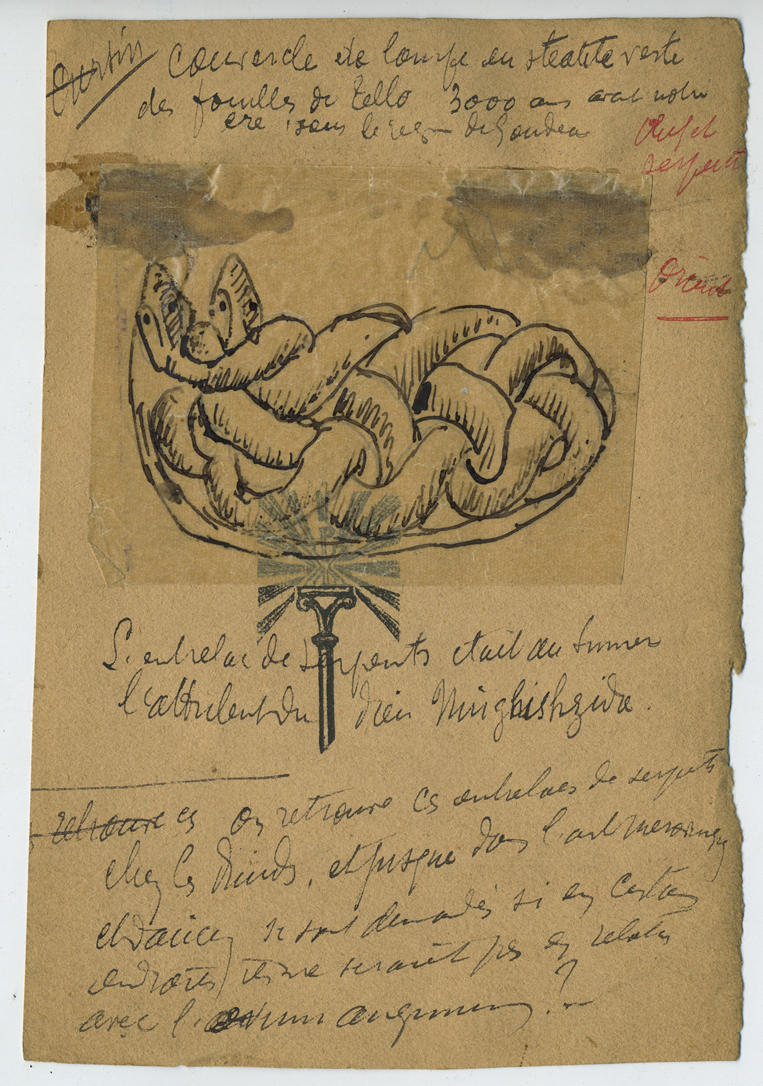 Oursin
couvercle de lampe en steatite verte
des fouilles de Tello 3000 ans avant notre
ere sous le regne de Goudea
Oeuf et
serpent
Orient
L'entrelac de serpents etait au Sumer
l'attribut du dieu Ningishzida.
retrouve ces on retrouve ces entrelacs de serpents
chez les Druids, et jusque dans l'art merovingien
et d'aucuns se sont demandés si en certains
endroits ne serait pas en relation
avec l'